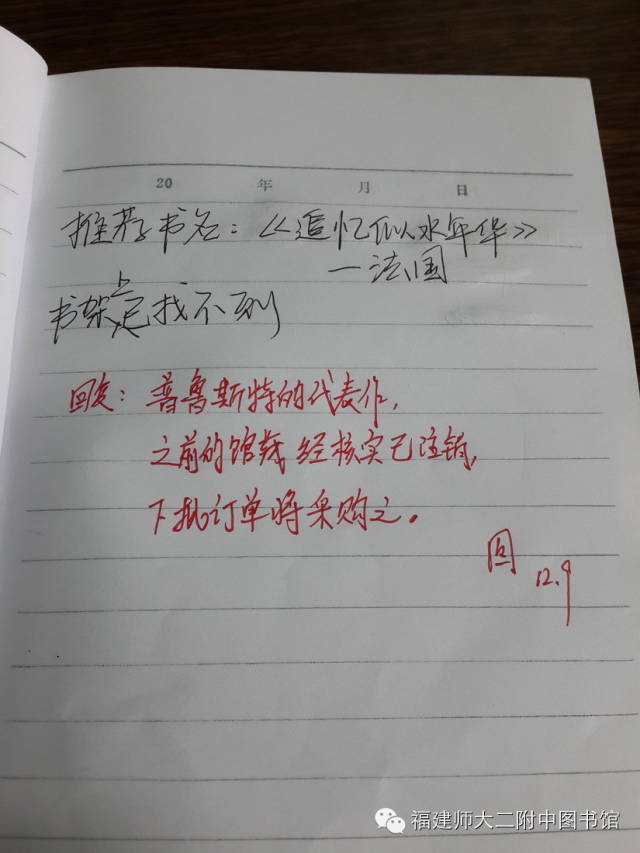 20 年 月 日
推荐书名：《追忆似水年华》
—法国
书架上总找不到
回复：普鲁斯特的代表作，
之前的馆藏经核实已注销，
下批订单将采购之。
12.9
福建师大二附中图书馆